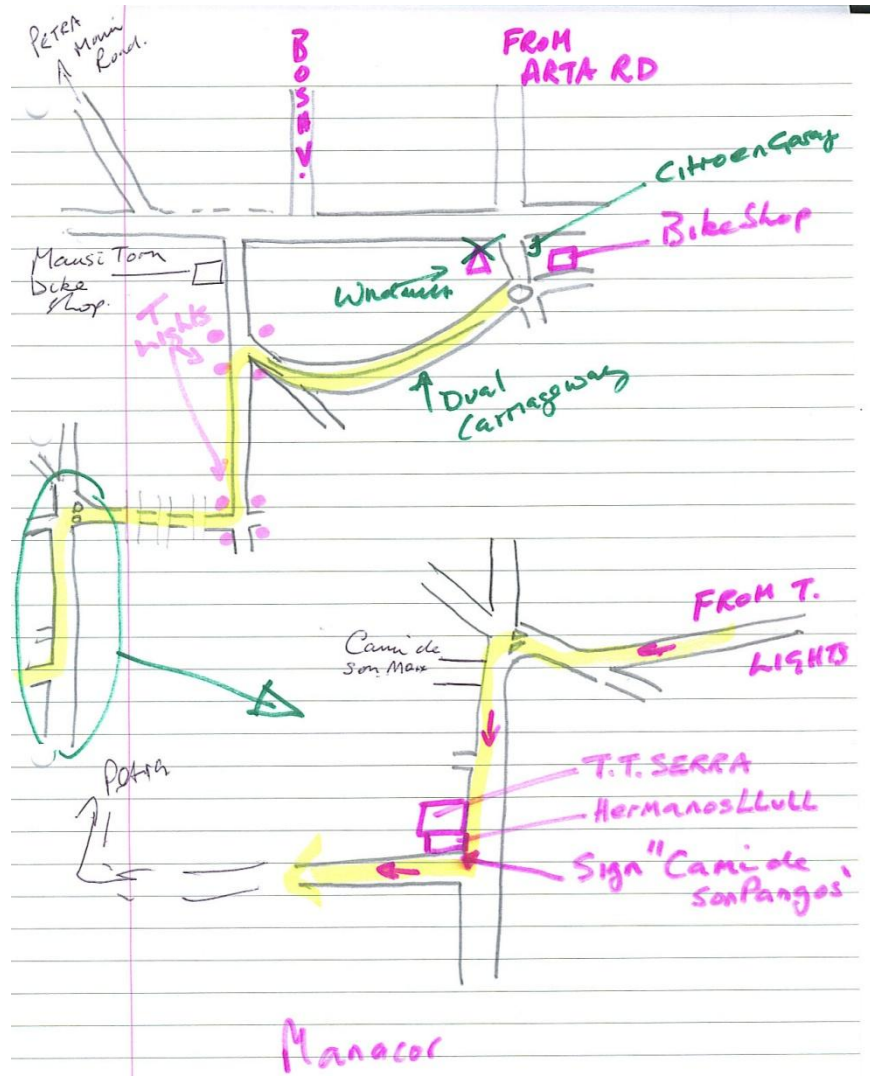 PETRA
Main
Road.
BOSHV.
FROM
ARTA RD
Citroen Garay
Bike Shop
Mausi Torn
bike
shop.
Windmill
T
Lights
Dual
Carriageway
FROM T.
LIGHTS
Cami de
son Max
Petra
T.T. SERRA
Hermanos LLull
Sign "Cami de
son Pangos'
Manacor